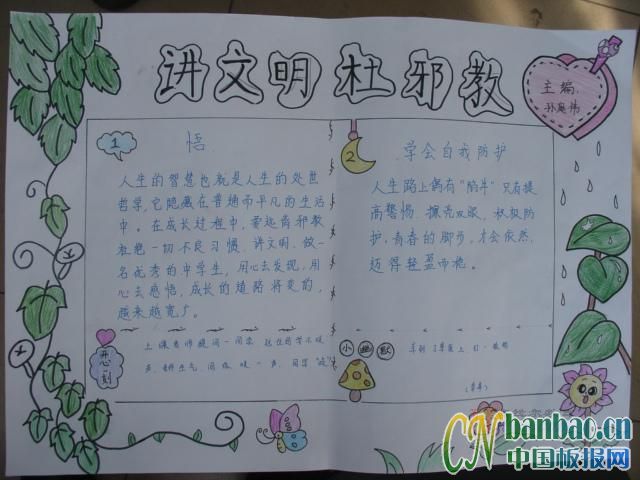 讲文明杜邪教
主编:
孙庭伟
1
悟
人生的智慧也就是人生的处世
哲学,它隐藏在普通而平凡的生活
中。在成长过程中,要远离邪教
杜绝一切不良习惯,讲文明,做一
名优秀的中学生,用心去发现,用
心去感悟,成长的道路将变的,
越来越宽广。
2
学会自我防护
人生路上偶有"陷井"只有提
高警惕,擦亮双眼,积极防
护,青春的脚步,才会依然,
迈得轻盈而
上课老师提问一同学
声,老师生气,同学
小幽默
CNbanbao.cn
中国板报网